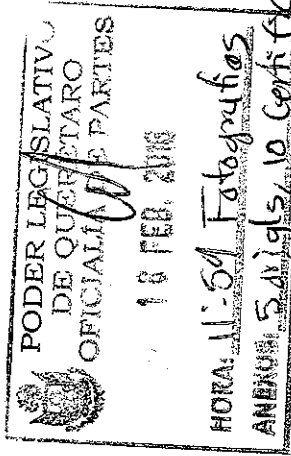 PODER LEGISLATIVO
DE QUERÉTARO
OFICIALIA DE PARTES
FEB. 
HORA: 11:59 Fotografias
ANEXOS: 5 origls, 10 Certif